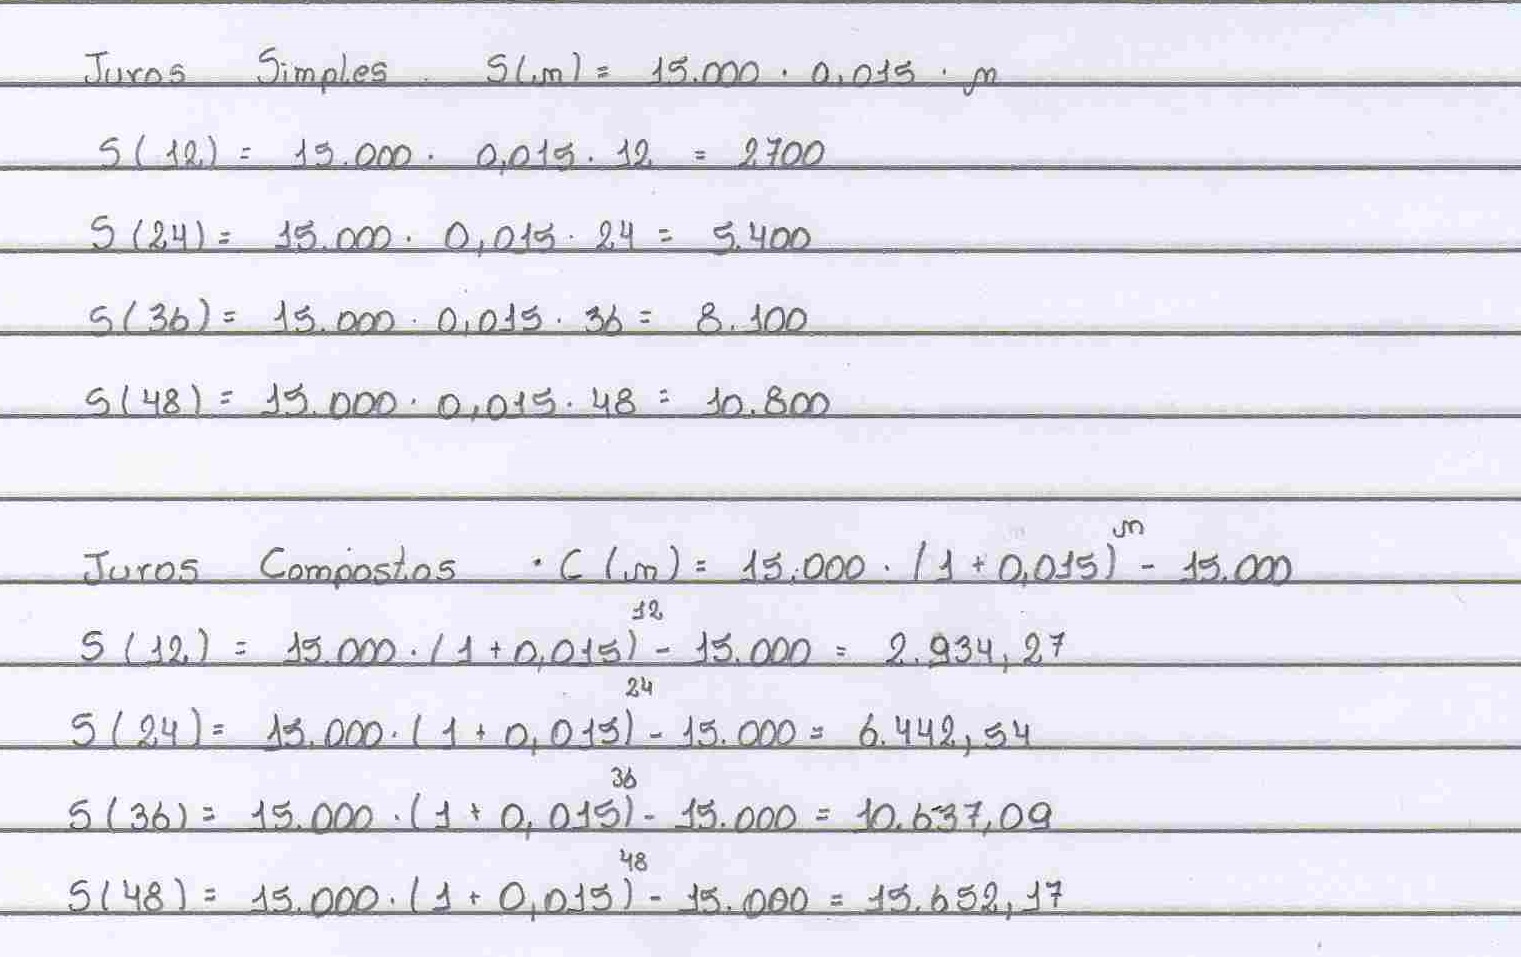 Juros Simples. S(n) = 15.000 · 0,015 · n
S(12) = 15.000 · 0,015 · 12 = 2700
S(24) = 15.000 · 0,015 · 24 = 5.400
S(36) = 15.000 · 0,015 · 36 = 8.100
S(48) = 15.000 · 0,015 · 48 = 10.800
Juros Compostos · C(n) = 15.000 · (1 + 0,015)ⁿ - 15.000
S(12) = 15.000 · (1 + 0,015)¹² - 15.000 = 2.934,27
S(24) = 15.000 · (1 + 0,015)²⁴ - 15.000 = 6.442,54
S(36) = 15.000 · (1 + 0,015)³⁶ - 15.000 = 10.637,09
S(48) = 15.000 · (1 + 0,015)⁴⁸ - 15.000 = 15.652,17